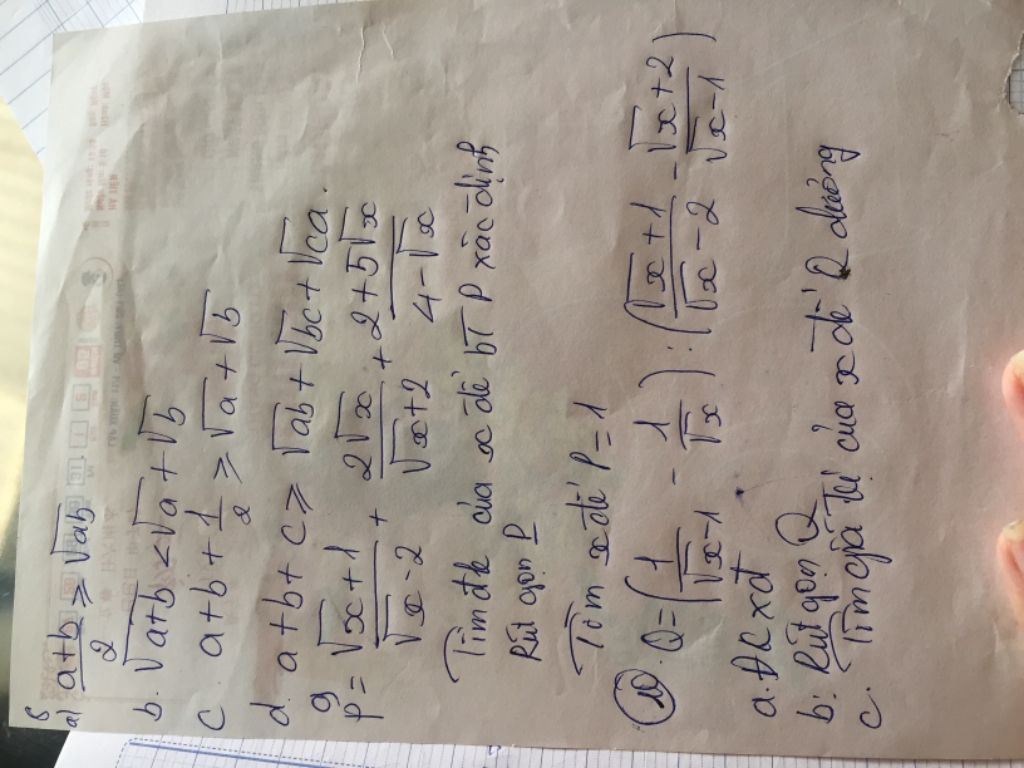 8
a) (a+b)/2 ≥ √ab
b. √a+b < √a + √b
c a+b+1/2 ≥ √a + √b
d. a+b+c ≥ √ab + √bc + √ca.
9
P = (√x+1)/(√x-2) + (2√x)/(√x+2) + (2+5√x)/(4-√x)
Tìm đk của x để bT P xác định
Rút gọn P
Tìm x để P=1
10. Q = (1/(√x-1) - 1/√x) : ((√x+1)/(√x-2) - (√x+2)/(√x-1))
a. ĐK xđ
b: Rút gọn Q
c Tìm giá trị của x để Q dương